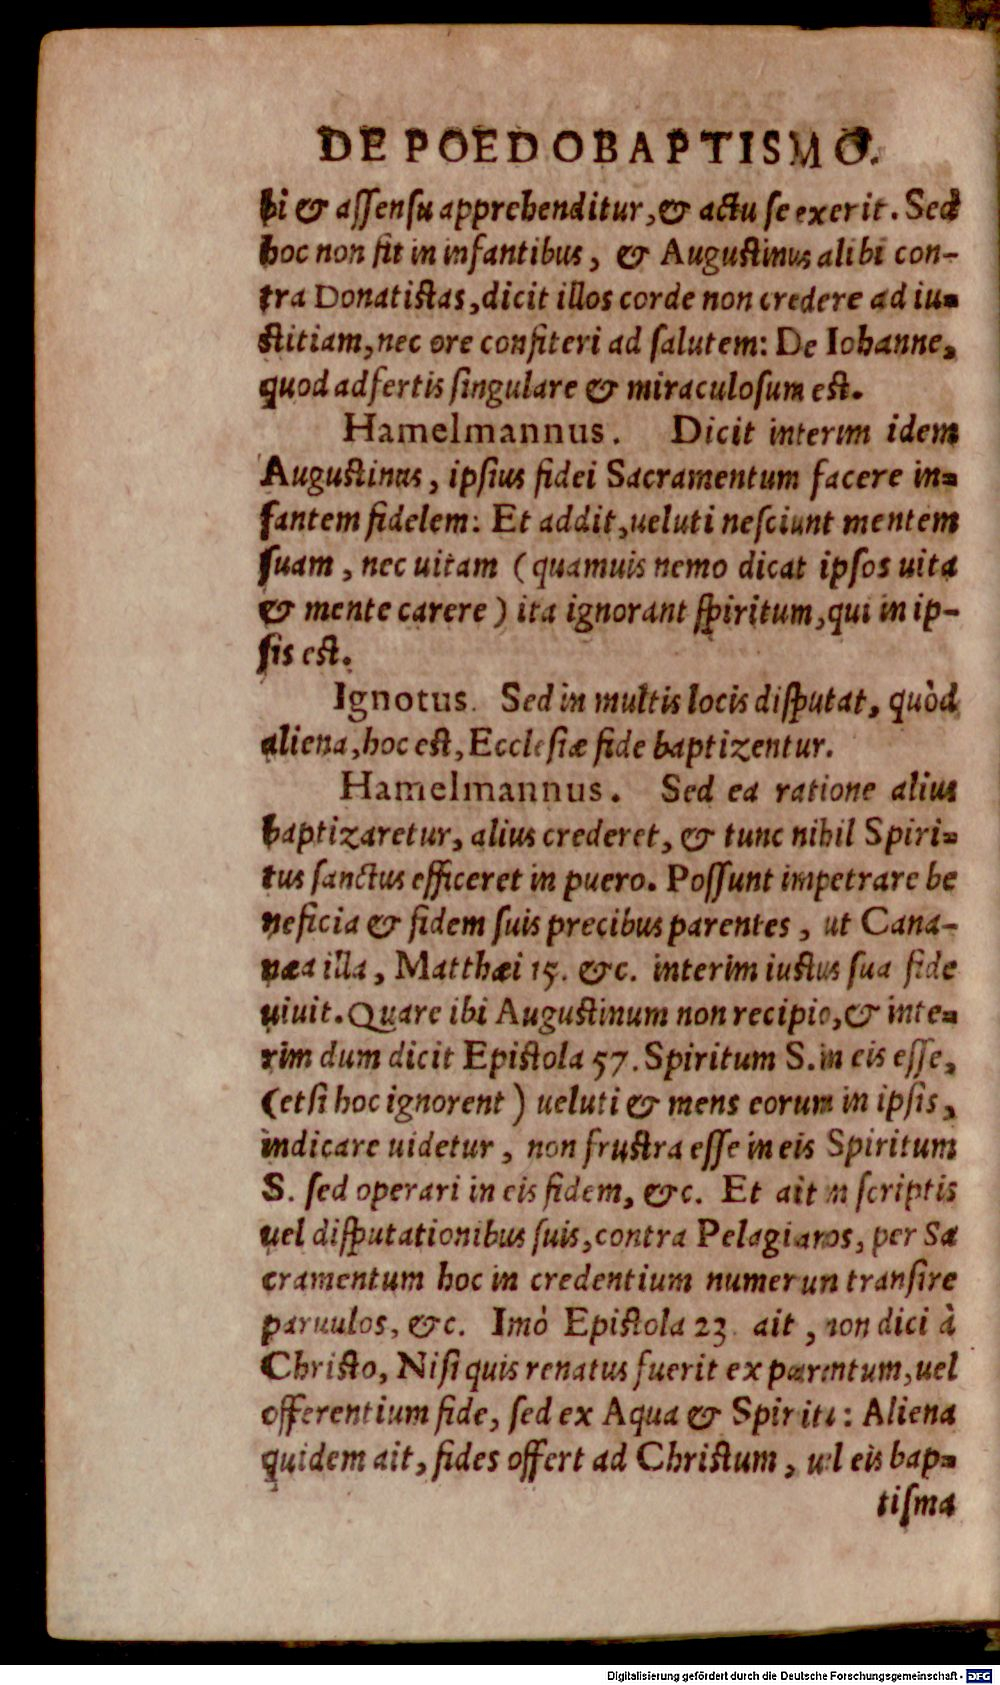 DE POEDOBAPTISMO.
bi & assensu apprehenditur, & actu se exerit. Sed
hoc non fit in infantibus, & Augustinus alibi con-
tra Donatistas, dicit illos corde non credere ad iu-
stitiam, nec ore confiteri ad salutem: De Iohanne,
quod adfertis singulare & miraculosum est.
Hamelmannus. Dicit interim idem
Augustinus, ipsius fidei Sacramentum facere in-
fantem fidelem: Et addit, ueluti nesciunt mentem
suam, nec uitam (quamuis nemo dicat ipsos uita
& mente carere) ita ignorant spiritum, qui in ip-
sis est.
Ignotus. Sed in multis locis disputat, quòd
aliena, hoc est, Ecclesiæ fide baptizentur.
Hamelmannus. Sed ea ratione alius
baptizaretur, alius crederet, & tunc nihil Spiri-
tus sanctus efficeret in puero. Possunt impetrare be
neficia & fidem suis precibus parentes, ut Cana-
næa illa, Matthæi 15. &c. interim iustus sua fide
uiuit. Quare ibi Augustinum non recipio, & inte-
rim dum dicit Epistola 57. Spiritum S. in eis esse,
(etsi hoc ignorent) ueluti & mens eorum in ipsis,
indicare uidetur, non frustra esse in eis Spiritum
S. sed operari in eis fidem, &c. Et ait in scriptis
uel disputationibus suis, contra Pelagianos, per Sa
cramentum hoc in credentium numerum transire
paruulos, &c. Imò Epistola 23. ait, non dici à
Christo, Nisi quis renatus fuerit ex parentum, uel
offerentium fide, sed ex Aqua & Spiritu: Aliena
quidem ait, fides offert ad Christum, uel eis bap-
tisma
Digitalisierung gefördert durch die Deutsche Forschungsgemeinschaft - DFG